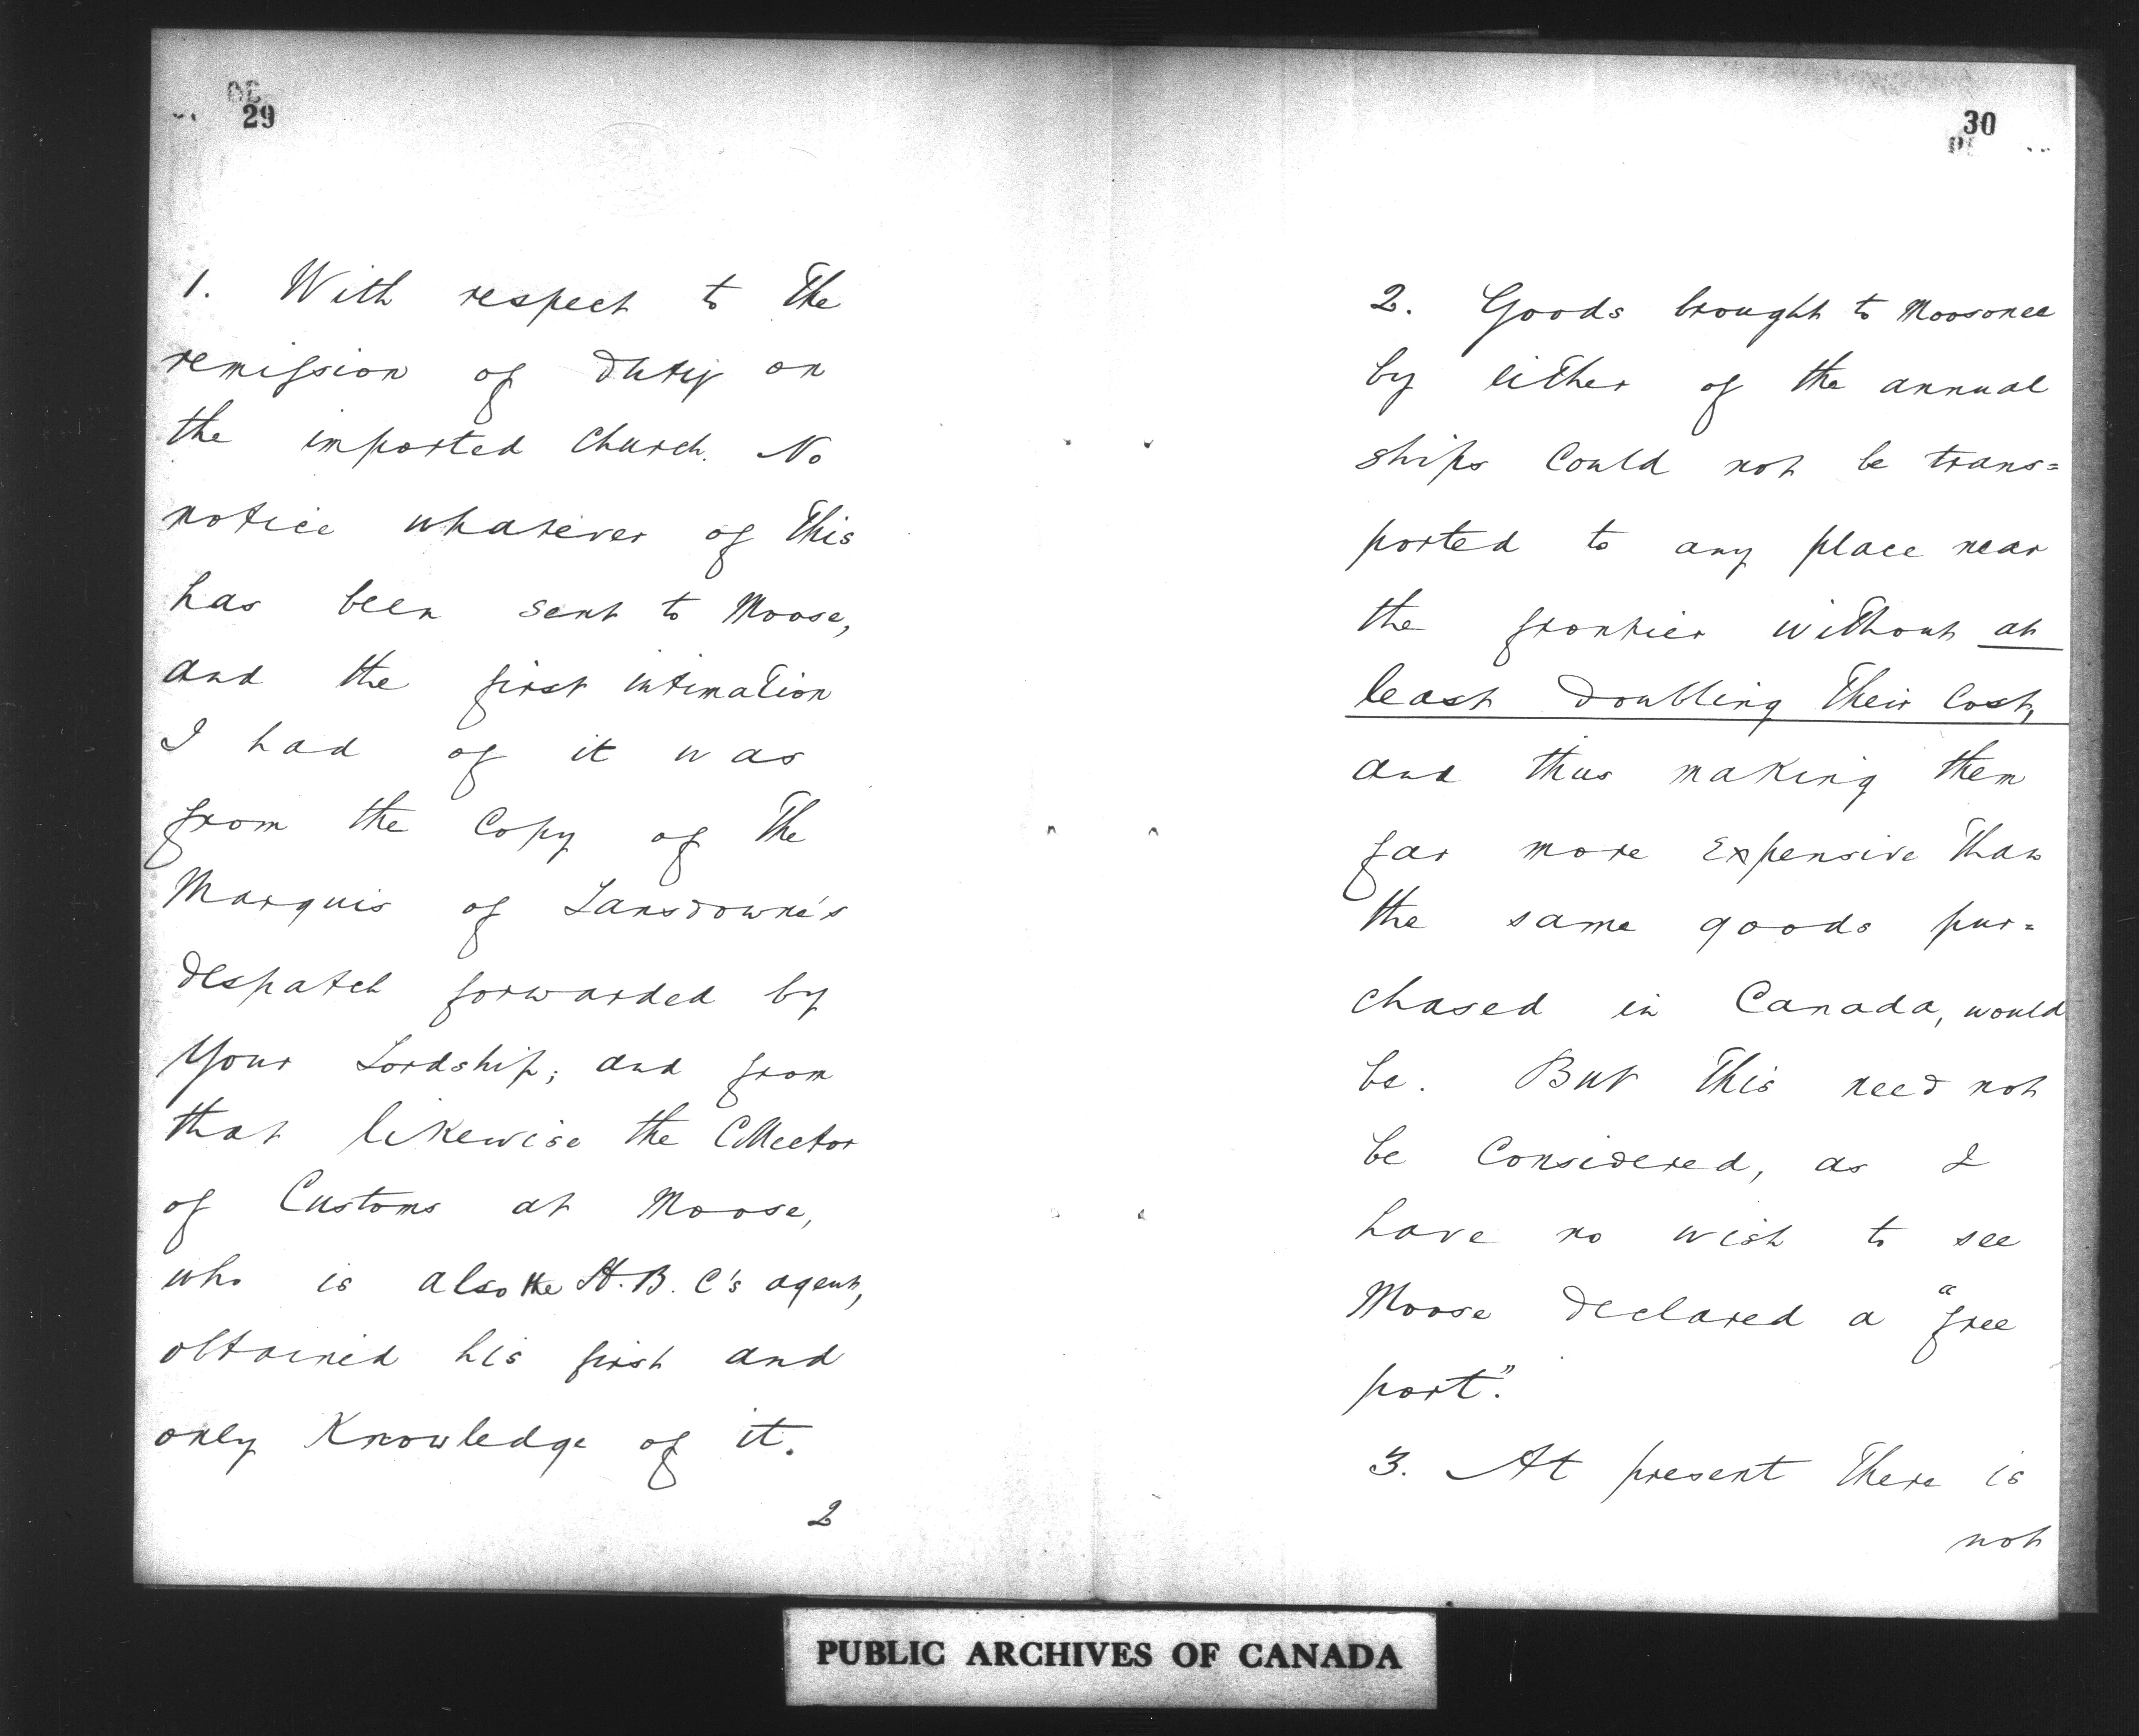 29
1. With respect to the
remission of duty on
the imported church. No
notice whatever of this
has been sent to Moose,
and the first intimation
I had of it was
from the Copy of the
Marquis of Lansdowne's
despatch forwarded by
Your Lordship; and from
that likewise the Collector
of Customs at Moose,
who is also the H. B. C's agent,
obtained his first and
only Knowledge of it.
2
30
2. Goods brought to Moosonee
by either of the annual
ships Could not be trans=
ported to any place near
the frontier without at
least doubling their Cost,
and thus making them
far more Expensive than
the same goods pur=
chased in Canada, would
be. But this need not
be Considered, as I
have no wish to see
Moose declared a "free
port".
3. At present there is
not
PUBLIC ARCHIVES OF CANADA